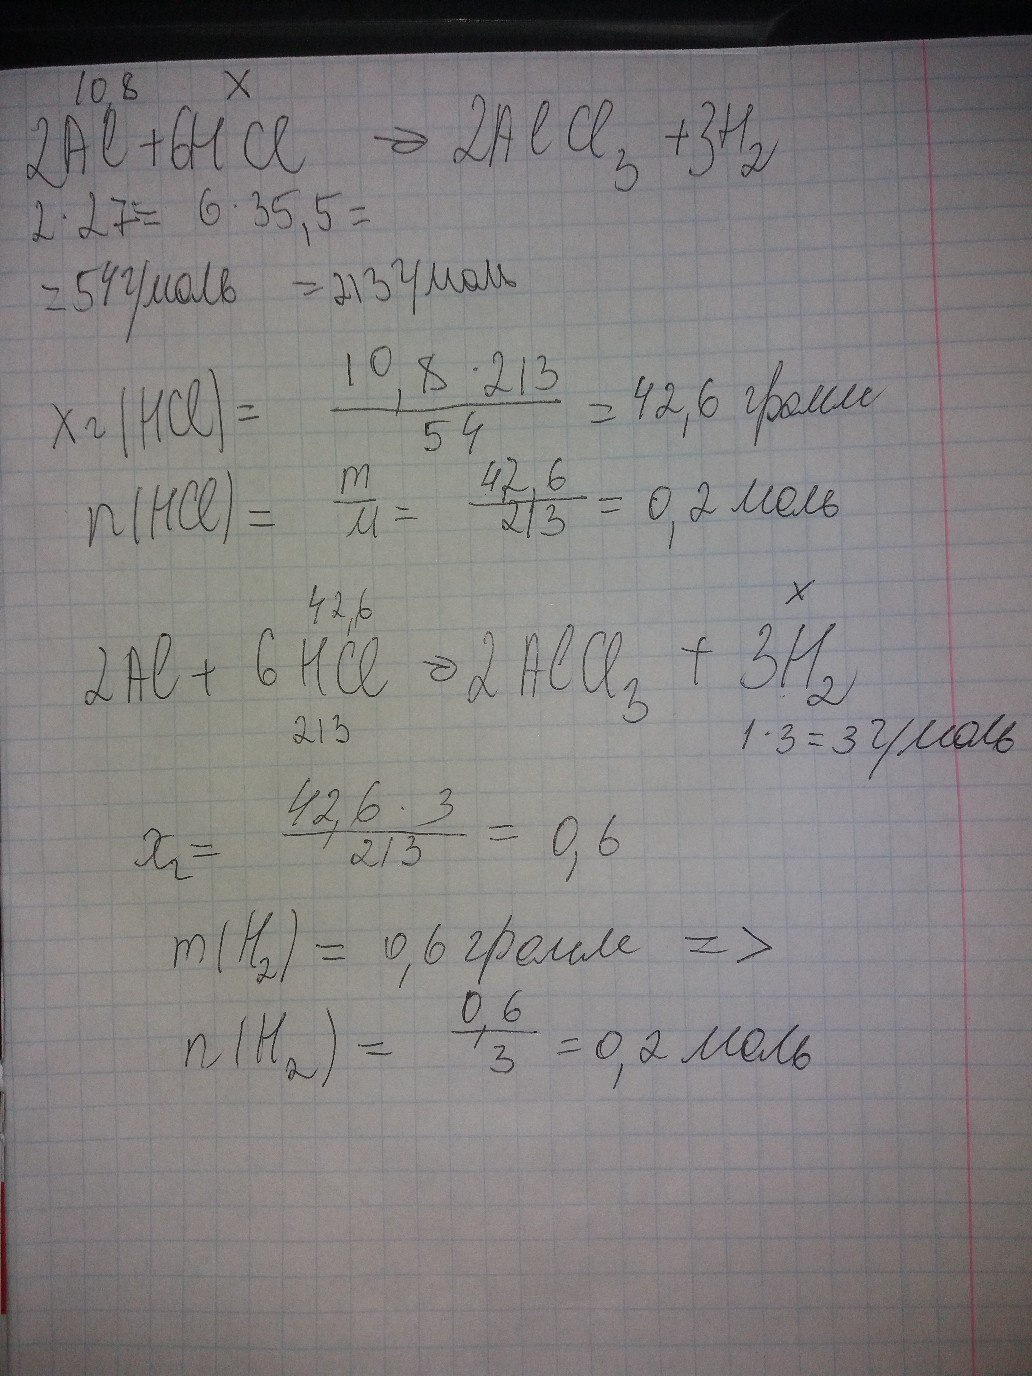 10,8 x
2Al + 6HCl → 2AlCl₃ + 3H₂
2·27= 6·35,5=
=54г/моль =213г/моль
xг(HCl) = 10,8·213/54 = 42,6 грамм
n(HCl) = m/M = 42,6/213 = 0,2 моль
42,6 x
2Al + 6HCl → 2AlCl₃ + 3H₂
213 1·3=3г/моль
xг = 42,6·3/213 = 0,6
m(H₂) = 0,6 грамм =>
n(H₂) = 0,6/3 = 0,2 моль